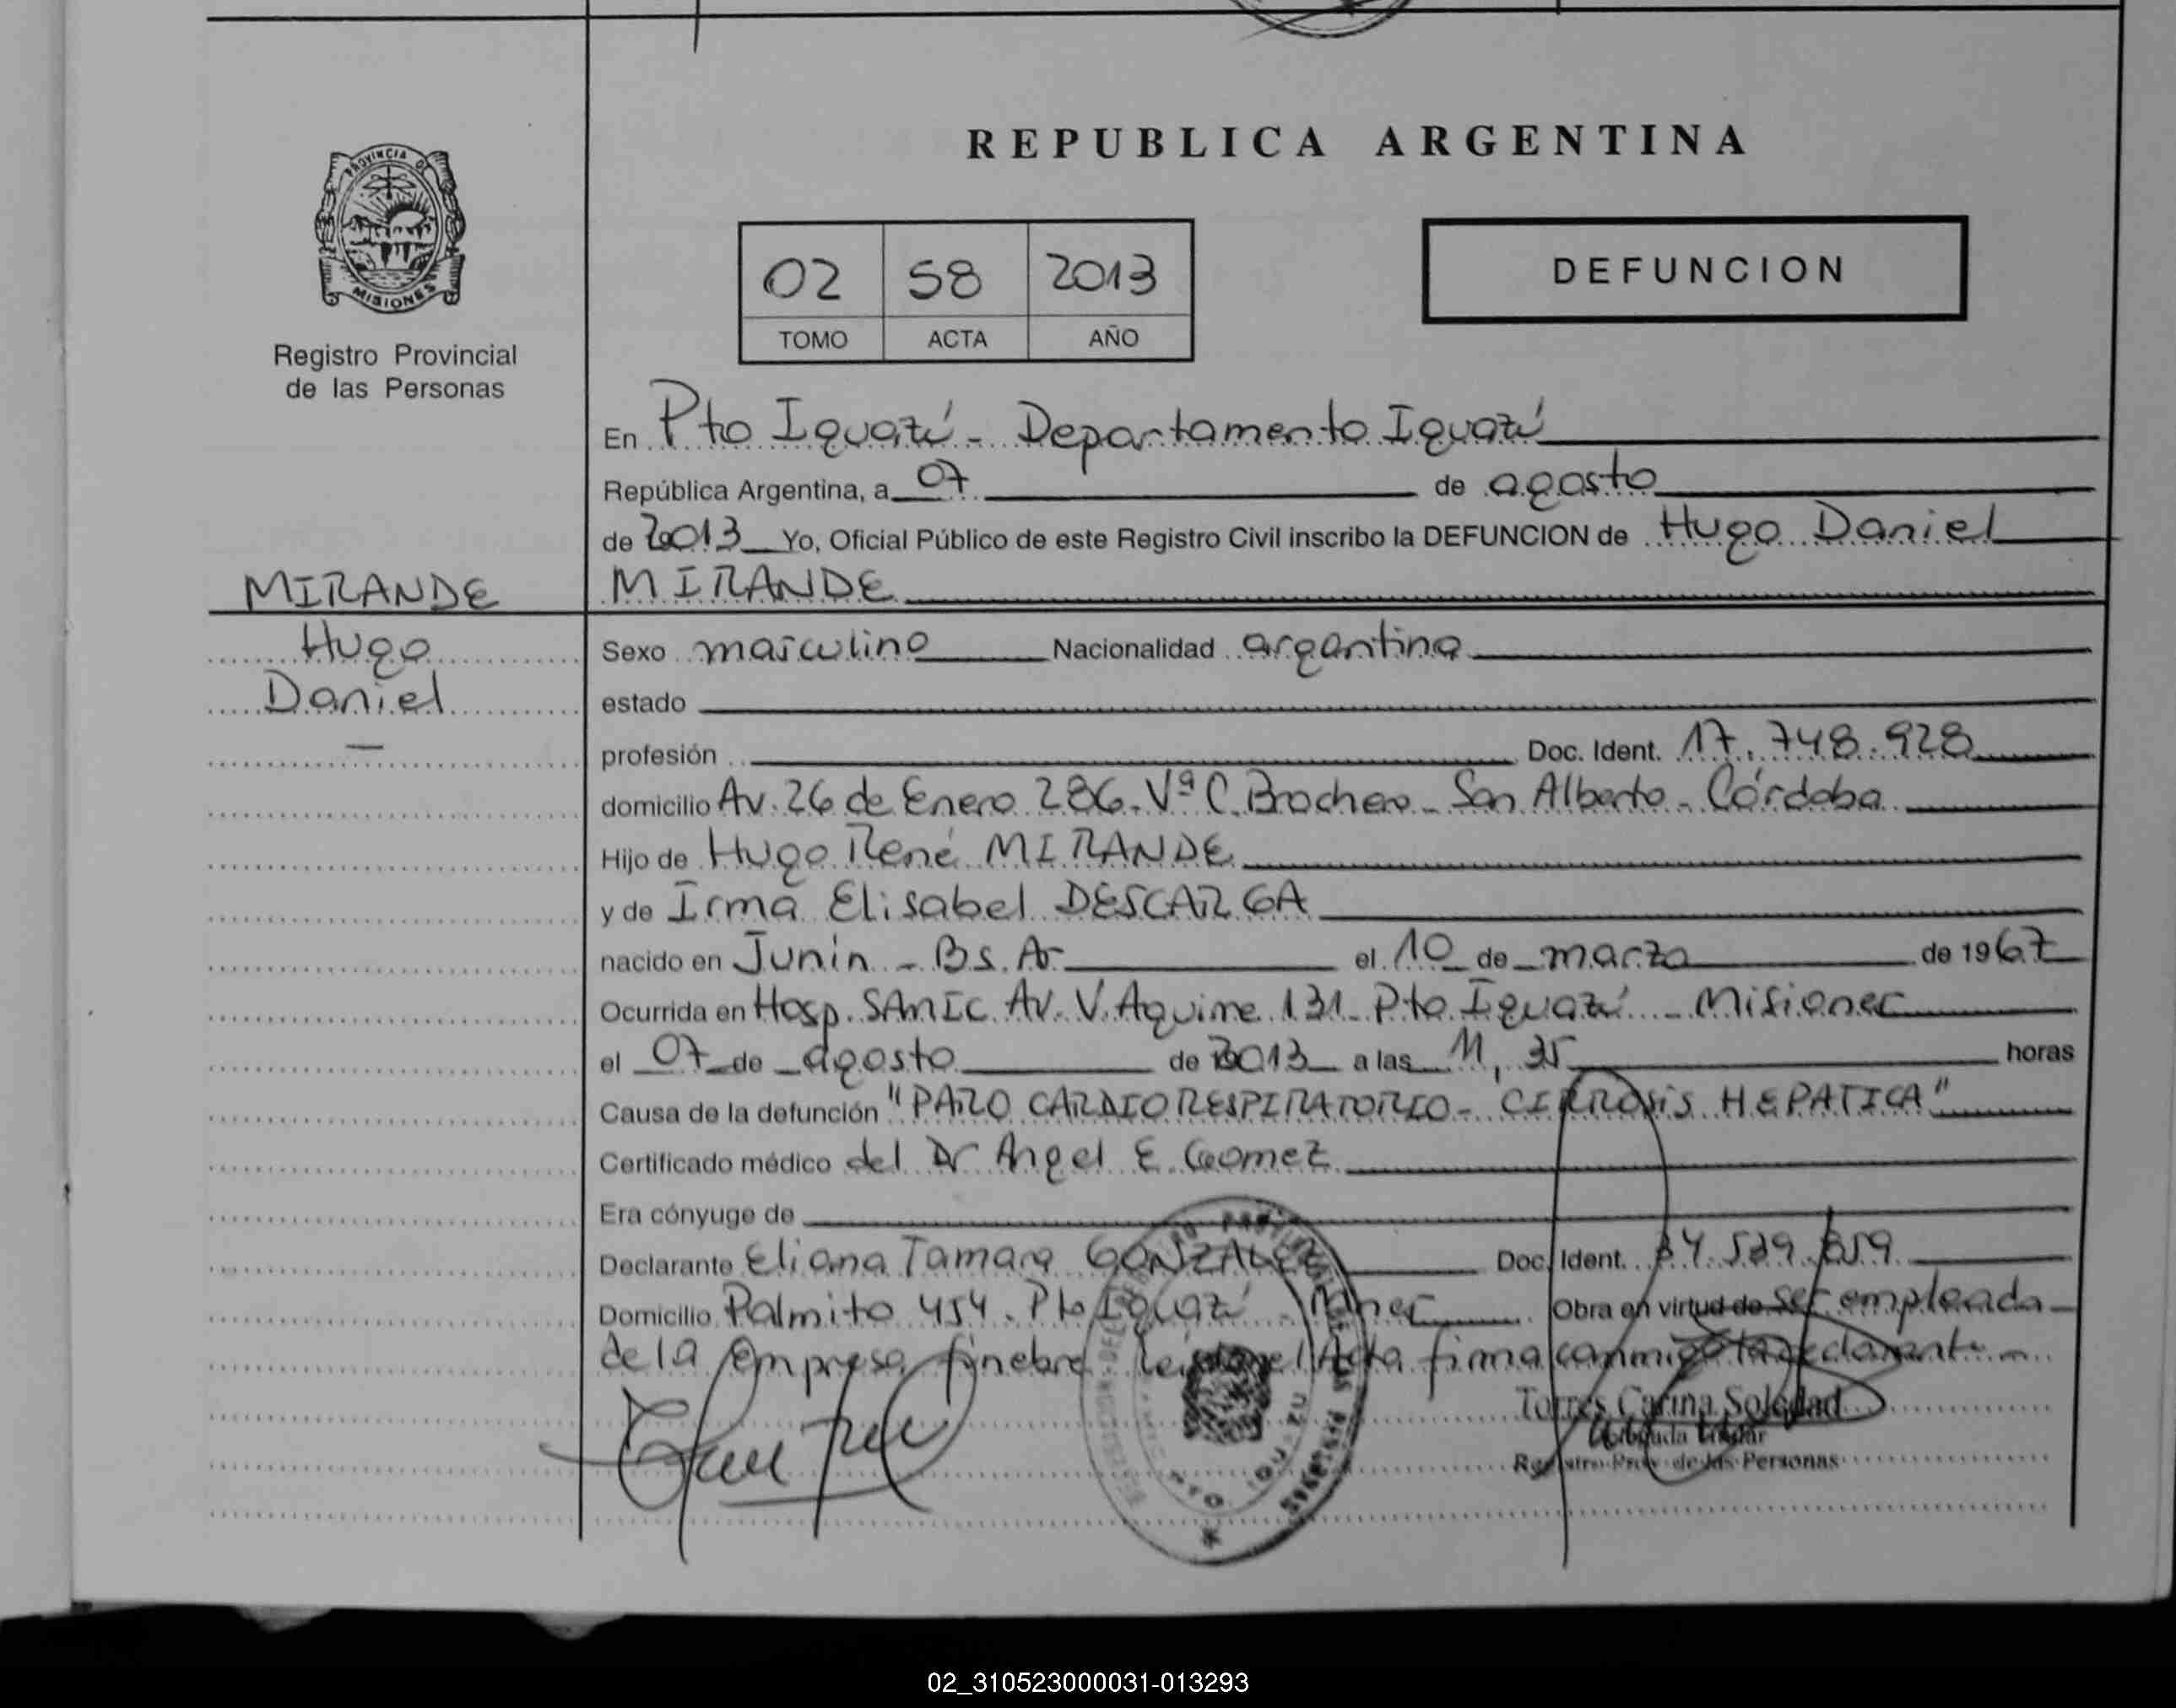 PROVINCIA DE
MISIONES
Registro Provincial
de las Personas
REPUBLICA ARGENTINA
02 58 2013
TOMO ACTA AÑO
DEFUNCION
En Pto Iguazú - Departamento Iguazú
República Argentina, a 07 de agosto
de 2013 Yo, Oficial Público de este Registro Civil inscribo la DEFUNCION de Hugo Daniel
MIRANDE
MIRANDE
Hugo
Daniel
Sexo masculino Nacionalidad argentina
estado
profesión Doc. Ident. 17.748.928
domicilio Av. 26 de Enero 286. Vª C. Brochero - San Alberto - Córdoba
Hijo de Hugo René MIRANDE
y de Irma Elisabel DESCARGA
nacido en Junin - Bs. As el 10 de marzo de 1967
Ocurrida en Hosp. SAMIC Av. V. Aguirre 131 - Pto Iguazú - Misiones
el 07 de agosto de 2013 a las 11,35 horas
Causa de la defunción "PARO CARDIORESPIRATORIO - CIRROSIS HEPATICA"
Certificado médico del Dr Angel E. Gomez
Era cónyuge de
Declarante Eliana Tamara GONZALEZ Doc. Ident.
Domicilio Palmito 454. Pto Iguazú - Mnes Obra en virtud de ser empleada
de la empresa fúnebre Acta firma conmigo la declarante
Torres Carina Soledad
Delegada Titular
Registro Prov. de las Personas
02_310523000031-013293